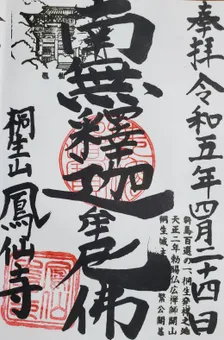 奉拝 令和五年四月二十四日
百選の一、桐生発祥之地
天正二年勅賜仏広禅師開山
桐生城主 繁公開基
南無釋迦牟尼佛
桐生山 鳳仙寺